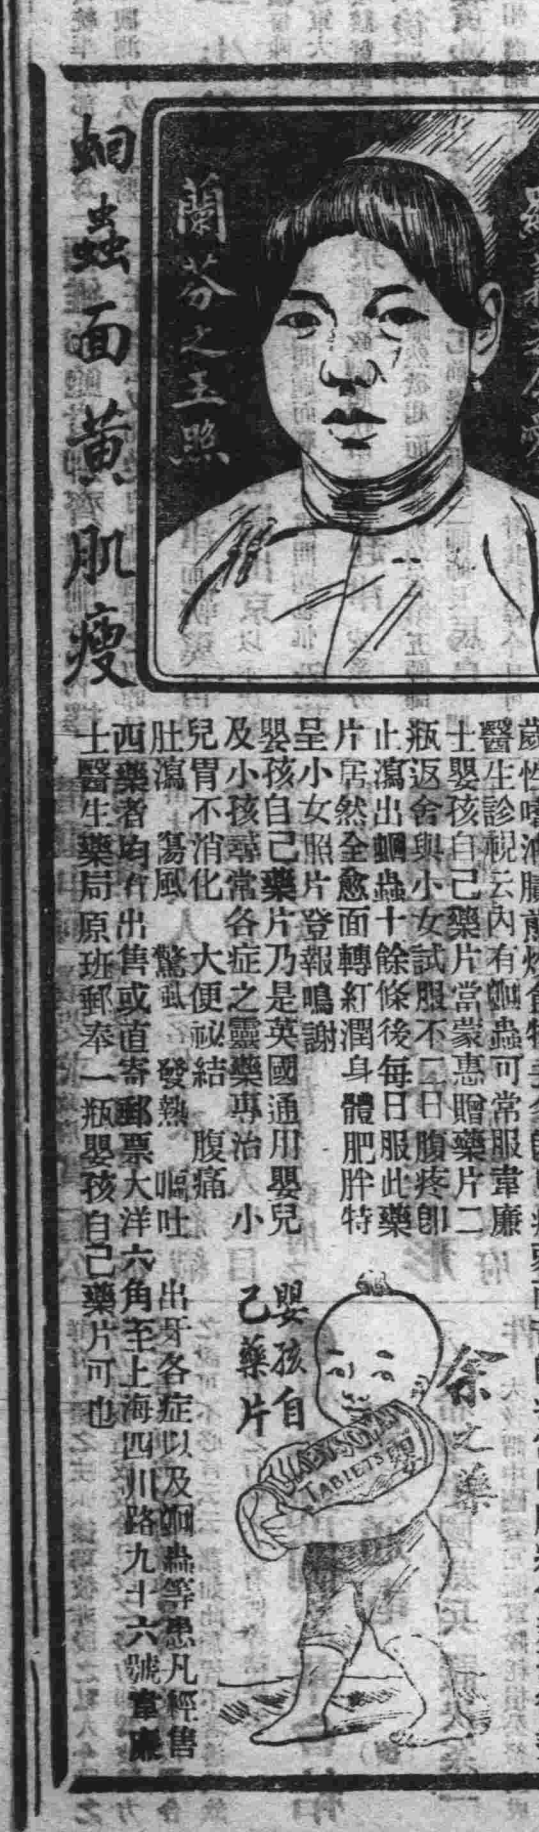 蘭芬之玉照
蛔蟲面黃肌瘦
醫生診視云內有蛔蟲可常服韋廉
士嬰孩自己藥片當蒙惠贈藥片二
瓶返舍與小女試服不二日腹疼卽
止瀉出蛔蟲十餘條後每日服此藥
片居然全愈面轉紅潤身體肥胖特
呈小女照片登報鳴謝
嬰孩自己藥片乃是英國通用嬰兒
及小孩尋常各症之靈藥專治 小
兒胃不消化 大便祕結 腹痛
肚瀉 傷風 驚風 發熱 嘔吐 出牙各症以及蛔蟲等患凡經售
西藥者均有出售或直寄郵票大洋六角至上海四川路九十六號韋廉
士醫生藥局原班郵奉一瓶嬰孩自己藥片可也
余之藥
嬰孩自
己藥片
TABLETS